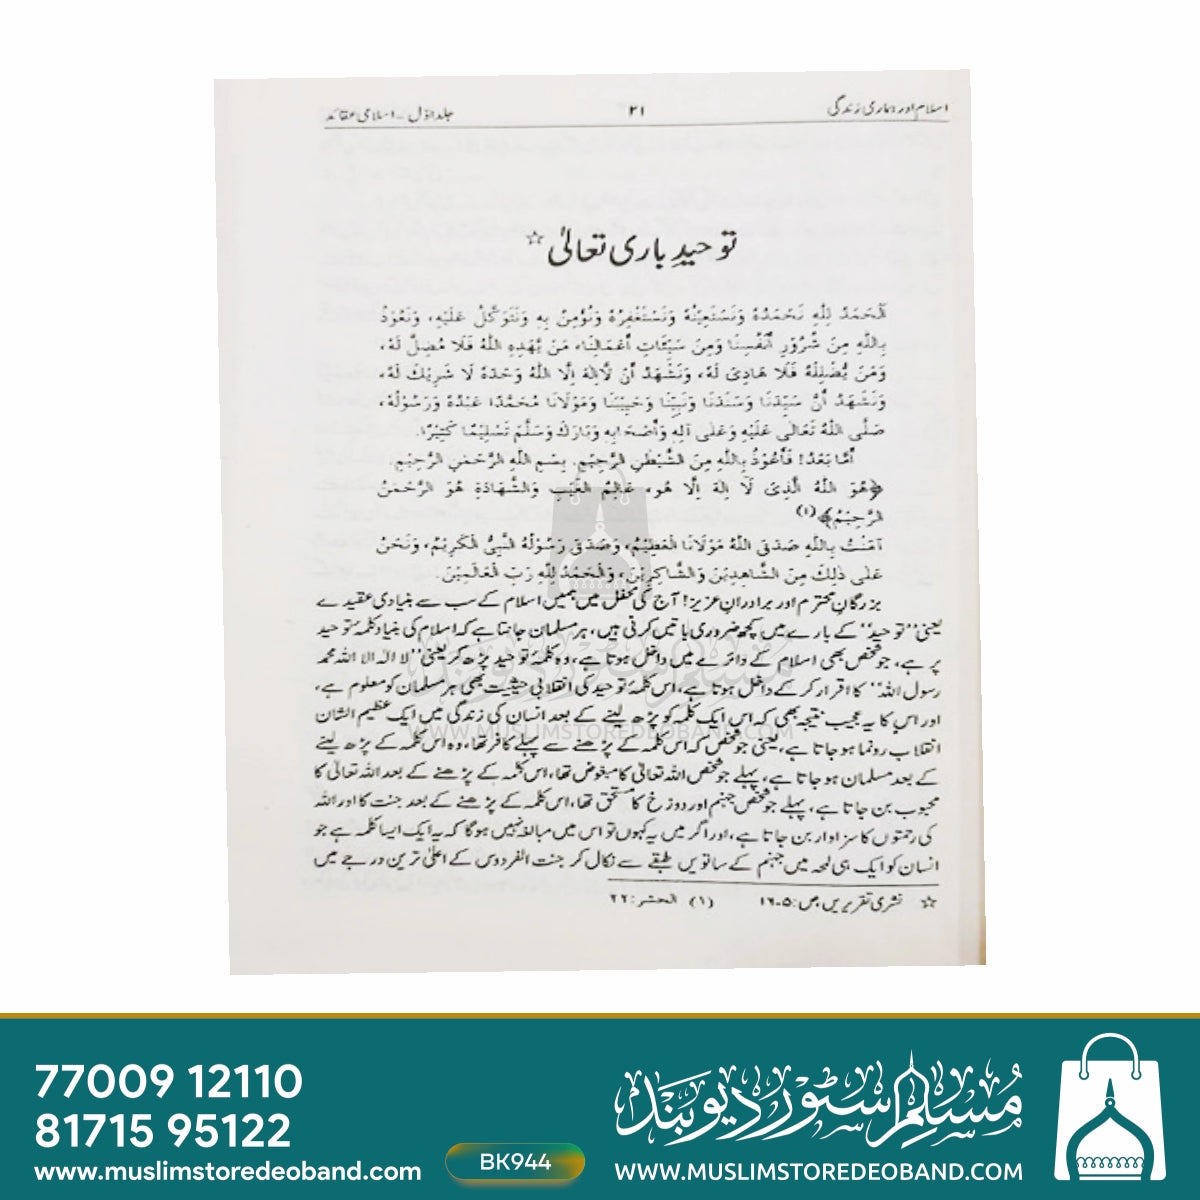 اسلام اور ہماری زندگی ۲۱ جلد اوّل - اسلامی عقائد
توحیدِ باری تعالیٰ ☆
اَلْحَمْدُ لِلّٰهِ نَحْمَدُهٗ وَنَسْتَعِيْنُهٗ وَنَسْتَغْفِرُهٗ وَنُؤْمِنُ بِهٖ وَنَتَوَكَّلُ عَلَيْهِ، وَنَعُوْذُ
بِاللّٰهِ مِنْ شُرُوْرِ أَنْفُسِنَا وَمِنْ سَيِّئَاتِ أَعْمَالِنَا، مَنْ يَّهْدِهِ اللّٰهُ فَلَا مُضِلَّ لَهٗ،
وَمَنْ يُّضْلِلْهُ فَلَا هَادِيَ لَهٗ، وَنَشْهَدُ أَنْ لَّاإِلٰهَ اِلَّا اللّٰهُ وَحْدَهٗ لَا شَرِيْكَ لَهٗ،
وَنَشْهَدُ أَنَّ سَيِّدَنَا وَسَنَدَنَا وَنَبِيَّنَا وَحَبِيْبَنَا وَمَوْلَانَا مُحَمَّدًا عَبْدُهٗ وَرَسُوْلُهٗ،
صَلَّى اللّٰهُ تَعَالٰى عَلَيْهِ وَعَلٰى آلِهٖ وَأَصْحَابِهٖ وَبَارَكَ وَسَلَّمَ تَسْلِيْمًا كَثِيْرًا.
أَمَّا بَعْدُ! فَأَعُوْذُ بِاللّٰهِ مِنَ الشَّيْطٰنِ الرَّجِيْمِ. بِسْمِ اللّٰهِ الرَّحْمٰنِ الرَّحِيْمِ.
﴿هُوَ اللّٰهُ الَّذِيْ لَا إِلٰهَ اِلَّا هُوَ، عَالِمُ الْغَيْبِ وَالشَّهَادَةِ هُوَ الرَّحْمٰنُ
الرَّحِيْمُ﴾(۱)
آمَنْتُ بِاللّٰهِ صَدَقَ اللّٰهُ مَوْلَانَا الْعَظِيْمُ، وَصَدَقَ رَسُوْلُهُ النَّبِيُّ الْكَرِيْمُ، وَنَحْنُ
عَلٰى ذٰلِكَ مِنَ الشَّاهِدِيْنَ وَالشَّاكِرِيْنَ، وَالْحَمْدُ لِلّٰهِ رَبِّ الْعَالَمِيْنَ.
بزرگانِ محترم اور برادرانِ عزیز! آج کی محفل میں ہمیں اسلام کے سب سے بنیادی عقیدے
یعنی ’’توحید‘‘ کے بارے میں کچھ ضروری باتیں کرنی ہیں، ہر مسلمان جانتا ہے کہ اسلام کی بنیاد کلمۂ توحید
پر ہے، جو شخص بھی اسلام کے دائرے میں داخل ہوتا ہے، وہ کلمۂ توحید پڑھ کر یعنی ’’لا الہ الا اللہ محمد
رسول اللہ‘‘ کا اقرار کر کے داخل ہوتا ہے، اس کلمۂ توحید کی انقلابی حیثیت بھی ہر مسلمان کو معلوم ہے،
اور اس کا یہ عجیب نتیجہ بھی کہ اس ایک کلمہ کو پڑھ لینے کے بعد انسان کی زندگی میں ایک عظیم الشان
انقلاب رونما ہو جاتا ہے، یعنی جو شخص کہ اس کلمہ کے پڑھنے سے پہلے کافر تھا، وہ اس کلمہ کے پڑھ لینے
کے بعد مسلمان ہو جاتا ہے، پہلے جو شخص اللہ تعالیٰ کا مبغوض تھا، اس کلمہ کے پڑھنے کے بعد اللہ تعالیٰ کا
محبوب بن جاتا ہے، پہلے جو شخص جہنم اور دوزخ کا مستحق تھا، اس کلمہ کے پڑھنے کے بعد جنت کا اور اللہ
کی رحمتوں کا سزاوار بن جاتا ہے، اور اگر میں یہ کہوں تو اس میں مبالغہ نہیں ہو گا کہ یہ ایک ایسا کلمہ ہے جو
انسان کو ایک ہی لمحہ میں جہنم کے ساتویں طبقے سے نکال کر جنت الفردوس کے اعلیٰ ترین درجے میں
☆ نشری تقریریں، ص: ۵-۱۶ (۱) الحشر: ۲۲
مسلم سٹور دیوبند
WWW.MUSLIMSTOREDEOBAND.COM
77009 12110
81715 95122
www.muslimstoredeoband.com
BK944
مسلم سٹور دیوبند
WWW.MUSLIMSTOREDEOBAND.COM